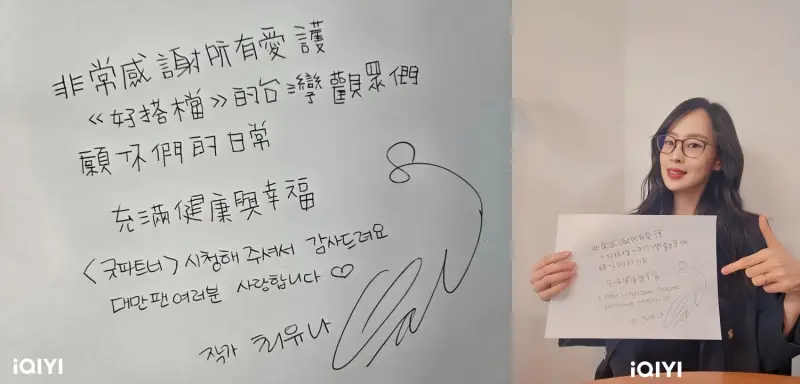 非常感謝所有愛護
《好搭檔》的台灣觀眾們
願你們的日常
充滿健康與幸福
<굿파트너> 시청해 주셔서 감사드려요
대만팬 여러분 사랑합니다 ♡
작가 최유나
iQIYI
iQIYI